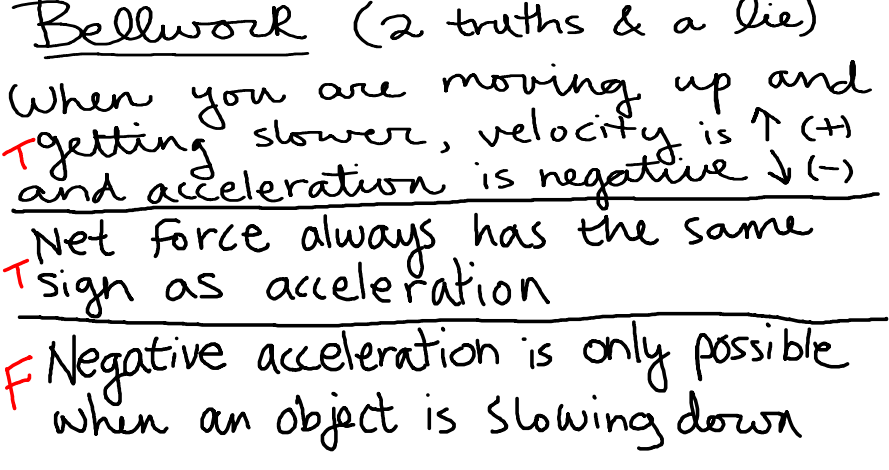 Bellwork (2 truths & a lie)
When you are moving up and
T getting slower, velocity is ↑ (+)
and acceleration is negative ↓ (-)
Net force always has the same
T sign as acceleration
F Negative acceleration is only possible
when an object is slowing down